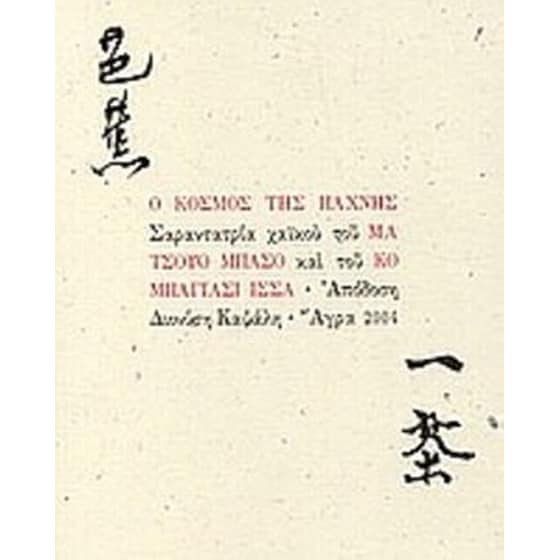 芭蕉
Ο ΚΟΣΜΟΣ ΤΗΣ ΠΑΧΝΗΣ
Σαραντατρία χαϊκοὺ τοῦ ΜΑ
ΤΣΟΥΟ ΜΠΑΣΟ καὶ τοῦ ΚΟ
ΜΠΑΓΙΑΣΙ ΙΣΣΑ • Ἀπόδοση
Διονύση Καψάλη • Ἄγρα 2004
一茶